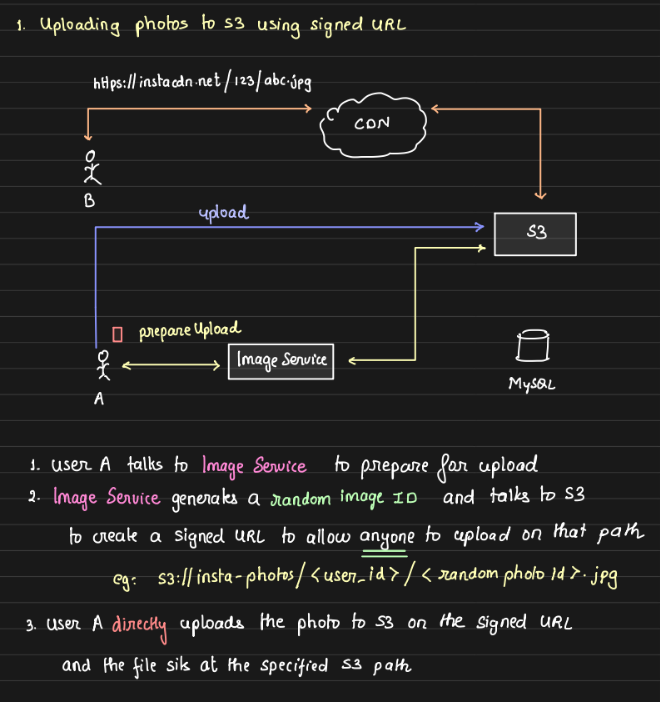 1. Uploading photos to S3 using signed URL
https://instacdn.net/123/abc.jpg
CDN
B
upload
S3
prepare Upload
Image Service
A
MySQL
1. user A talks to Image Service to prepare for upload
2. Image Service generates a random image ID and talks to S3
to create a signed URL to allow anyone to upload on that path
eg: s3://insta-photos/<user_id>/<random photo id>.jpg
3. user A directly uploads the photo to S3 on the signed URL
and the file sits at the specified S3 path